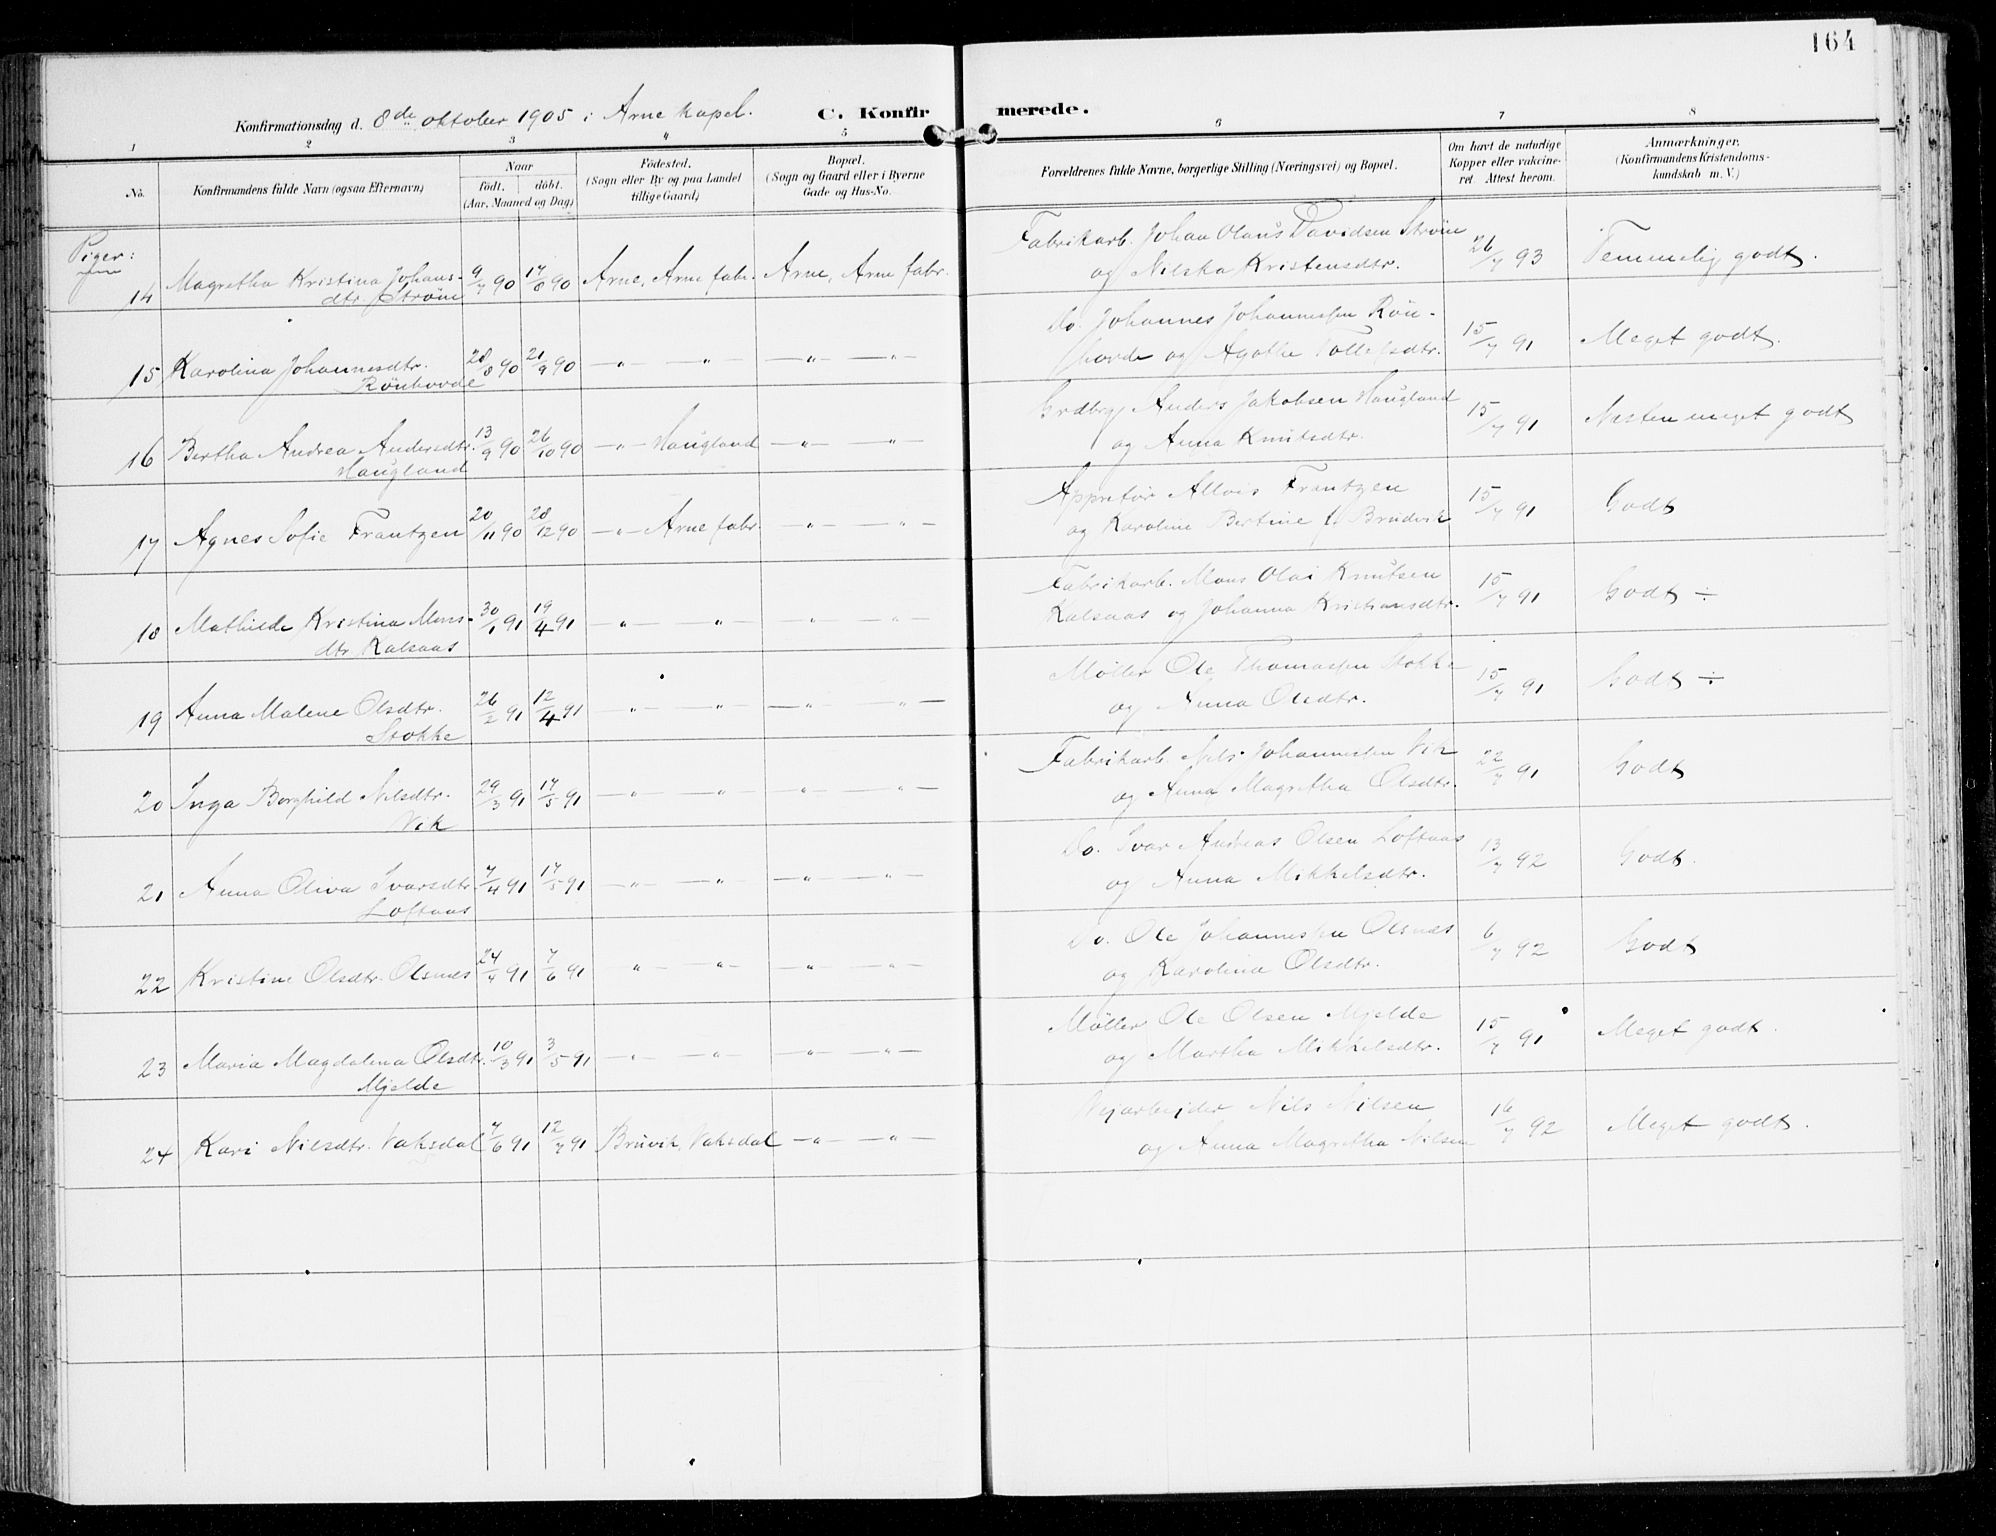 164
Konfirmationsdag d. 8de oktober 1905 i Arne kapel. C. Konfirmerede.
1 2 3 4 5 6 7 8
No. Konfirmandens fulde Navn (ogsaa Efternavn) Naar født. døbt. (Aar, Maaned og Dag) Fødested. (Sogn eller By og paa Landet tillige Gaard) Bopæl. (Sogn og Gaard eller i Byerne Gade og Hus-No. Forældrenes fulde Navne, borgerlige Stilling (Næringsvei) og Bopæl. Om havt de naturlige Kopper eller vakcineret. Attest herom. Anmærkninger. (Konfirmandens Kristendomskundskab m. V.)
Piger:
14 Magretha Kristina Johans- 9/7 90 17/8 90 Arne, Arne fabr. Arne, Arne fabr. Fabrikarb. Johan Olaus Davidsen Strøm 26/7 93 Temmelig godt.
dtr. Strøm og Nilska Kristensdtr.
15 Karolina Johannesdtr. 28/8 90 21/9 90 —„— —„— —„— —„— Do. Johannes Johannessen Røn- 15/7 91 Meget godt.
Rönhovde hovde og Agathe Tollefsdtr.
16 Bertha Andrea Andersdtr. 13/9 90 26/10 90 —„— Haugland —„— —„— Grdbrg. Anders Jakobsen Haugland 15/7 91 Næsten meget godt
Haugland og Anna Knutsdtr.
17 Agnes Sofie Frantzen 20/11 90 28/12 90 —„— Arne fabr. —„— —„— Appretør Allois Frantzen 15/7 91 Godt
og Karoline Bertine f. Brudvik
18 Mathilde Kristina Mons- 30/1 91 19/4 91 —„— —„— —„— —„— Fabrikarb. Mons Olai Knutsen 15/7 91 Godt ÷
dtr. Kalsaas Kalsaas og Johanna Kristiansdtr.
19 Anna Malene Olsdtr. 26/2 91 12/4 91 —„— —„— —„— —„— Møller Ole Thomassen Stokke 15/7 91 Godt ÷
Stokke og Anna Olsdtr.
20 Inga Borghild Nilsdtr. 29/3 91 17/5 91 —„— —„— —„— —„— Fabrikarb. Nils Johannessen Vik 22/7 91 Godt
Vik og Anna Magretha Olsdtr.
21 Anna Oliva Ivarsdtr. 7/4 91 17/5 91 —„— —„— —„— —„— Do. Ivar Andreas Olsen Loftaas 13/7 92 Godt.
Loftaas og Anna Mikkelsdtr.
22 Kristine Olsdtr. Olsnæs 24/4 91 7/6 91 —„— —„— —„— —„— Do. Ole Johannessen Olsnæs 6/7 92 Godt
og Karolina Olsdtr.
23 Maria Magdalena Olsdtr. 10/3 91 3/5 91 —„— —„— —„— —„— Møller Ole Olsen Mjelde 15/7 91 Meget godt.
Mjelde og Martha Mikkelsdtr.
24 Kari Nilsdtr. Vaksdal 7/6 91 12/7 91 Bruvik, Vaksdal —„— —„— Vejarbejder Nils Nilsen 16/7 92 Meget godt.
og Anna Magretha Nilsen